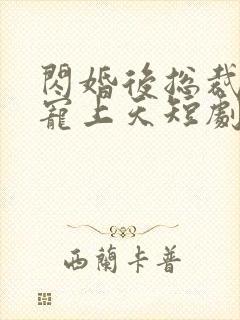 閃婚後総裁
寵上天短劇
西蘭卡普